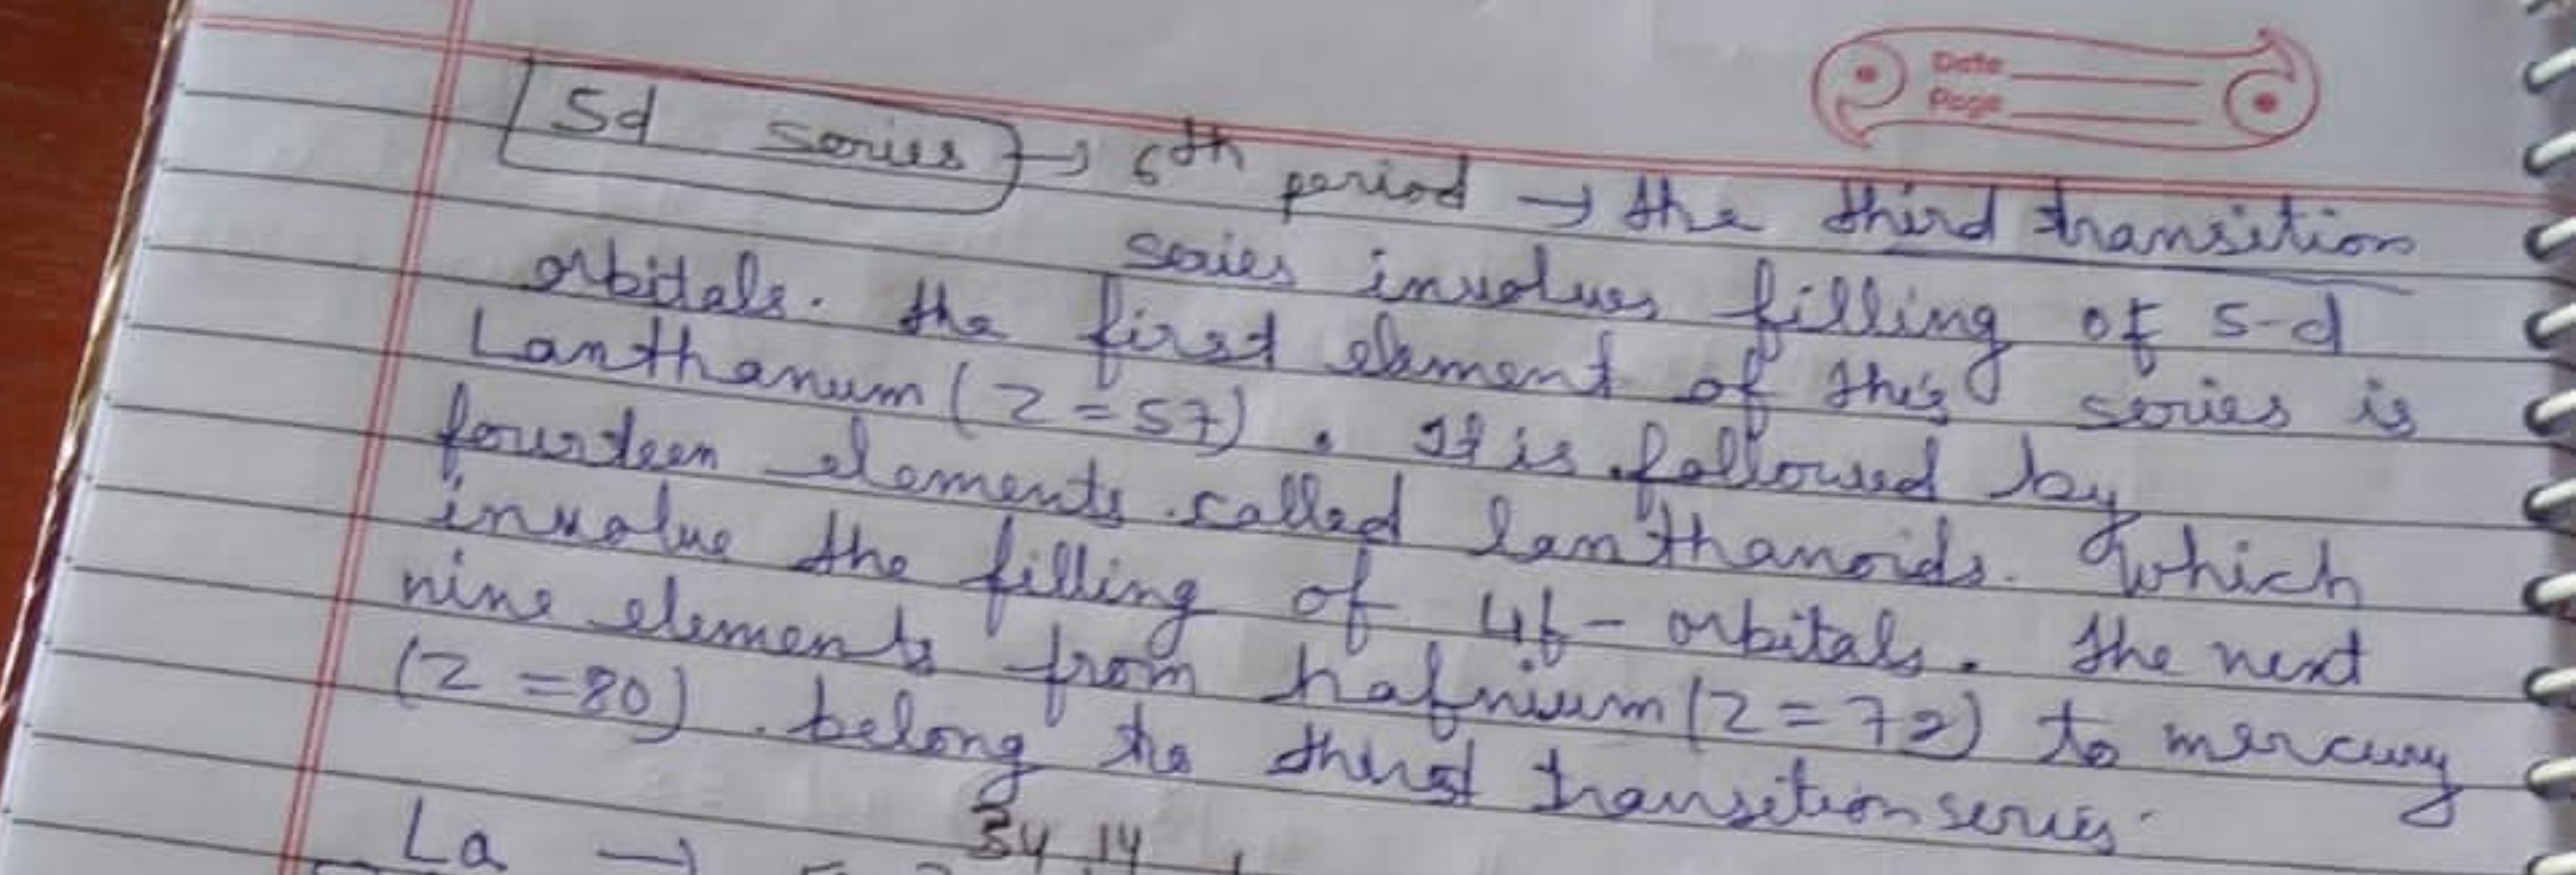 Date
Page
5d series → 6th period → the third transition
series involves filling of 5-d
orbitals. the first element of this series is
Lanthanum (Z=57). It is followed by
fourteen elements called lanthanoids. which
involve the filling of 4f- orbitals. the next
nine elements from hafnium (Z=72) to mercury
(Z=80). belong the third transition series.
La →